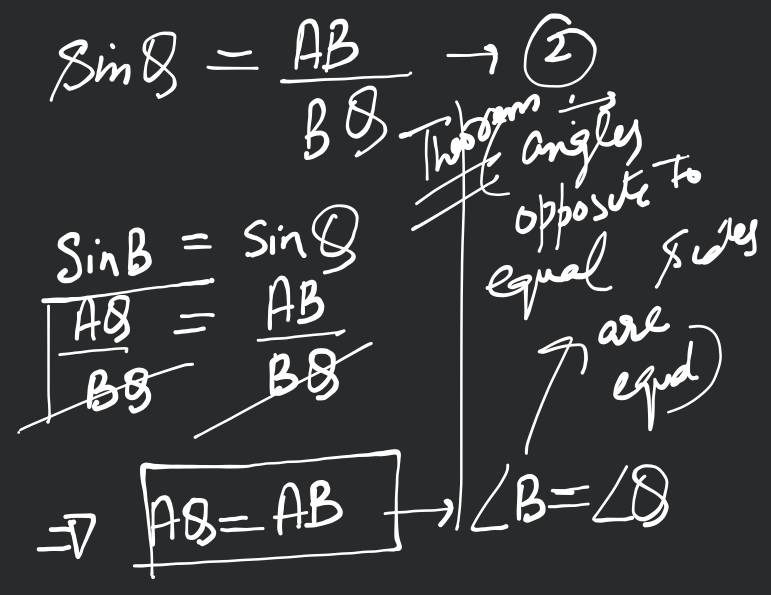 Sin Q = AB / BQ → ②
Theorem :→
( angles
opposite to
equal sides
are
equal)
Sin B = Sin Q
AQ / BQ = AB / BQ
⇒ AQ = AB → ∠B = ∠Q